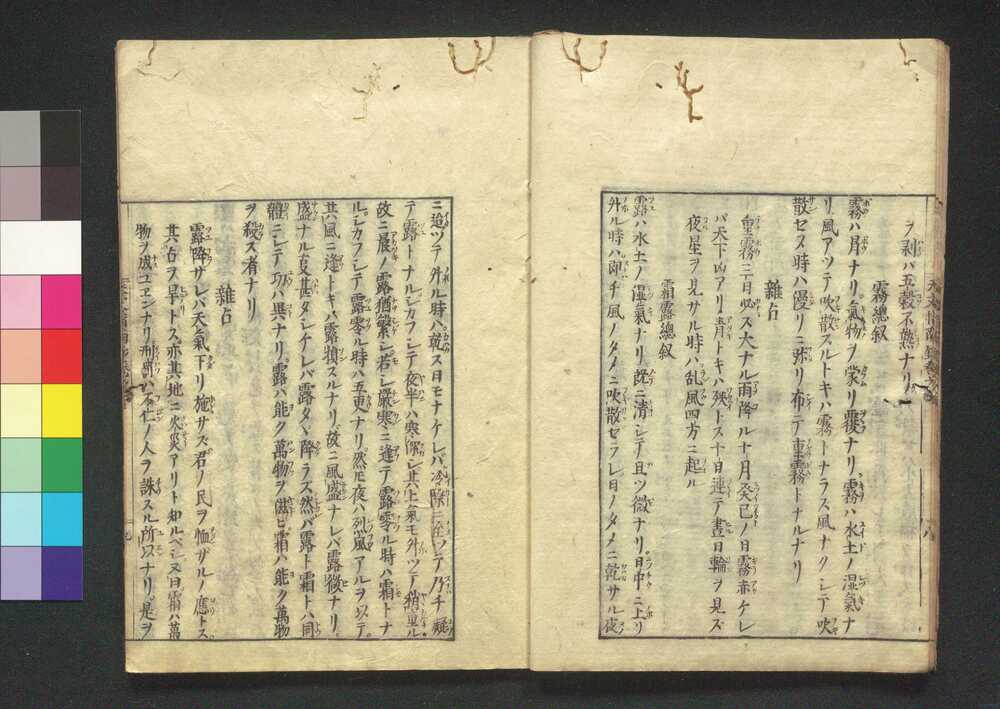 ヲ剥バ五穀不熟ナリ
霧總叙
霧ハ月ナリ氣物ヲ蒙リ覆ナリ霧ハ水土ノ湿氣ナ
リ風アツテ吹散スルトキハ霧トナラス風ナクシテ吹
散セス時ハ漫リニ弥リ布テ重霧トナルナリ
雜占
重霧三日必ス大ナル雨降ル十月癸巳ノ日霧赤ケレ
バ天下凶アリ青トキハ殃トス十日連テ晝日輪ヲ見ズ
夜星ヲ見サル時ハ乱風四方ニ起ル
霜露總叙
露ハ水土ノ湿氣ナリ既ニ清シテ且ツ微ナリ日中ニ上リ
外ル時ハ即チ風ノタメニ吹散セラレ日ノタメニ乾サル夜
ニ迨ツテ外ル時ハ乾ス日モナケレバ冷際ニ至ツテ乃チ凝
テ露トナルシカフシテ夜半ハ寒深シ其上氣モ外ツテ稍重ル
故ニ晨ノ露猶繁シ若シ嚴寒ニ逢テ露零ル時ハ霜トナ
ルシカフシテ露零ル時ハ五更ナリ然モ夜ハ烈風アルヲ以テ
其風ニ逢トキハ露損スルナリ故ニ風盛ナレバ露微ナリ
盛ナル夏甚タシケレバ露タヽ降ラズ然バ露ト霜トハ同
體ニシテ功ハ異ナリ露ハ能ク萬物ヲ滋ヒ霜ハ能ク萬物
ヲ殺ス者ナリ
雜占
露降サレバ天氣下リ施サズ君ノ民ヲ恤ザルノ應トス
其占ヲ旱トス亦其地ニ火災アリト知ルベシ又曰霜ハ萬
物ヲ成ユヱンナリ刑罰ハ不仁ノ人ヲ誅スル所以ナリ是ヲ